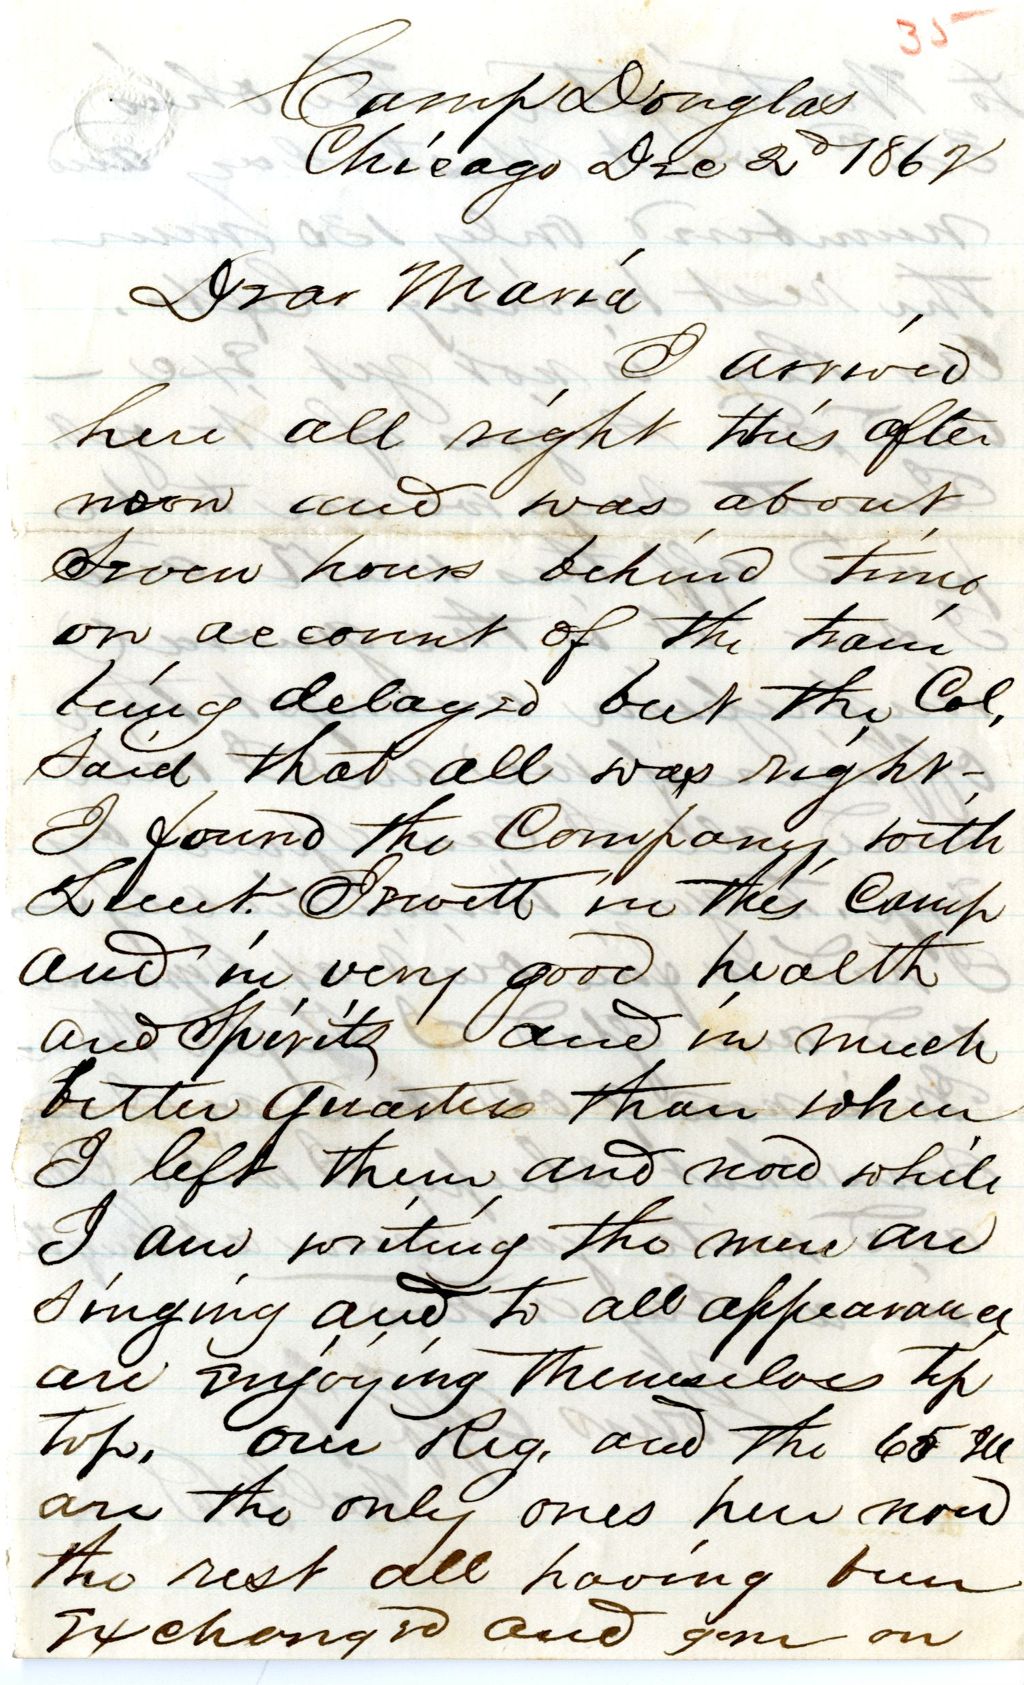 35
Camp Douglas
Chicago Dec 2d 1862
Dear Maria
I arrived
here all right this after
noon and was about
Seven hours behind time
on account of the train
being delayed but the Col.
said that all was right -
I found the Company with
Lieut. in this Camp
and in very good health
and Spirits and in much
better Quarters than when
I left them and now while
I am writing the men are
singing and to all appearance
are Enjoying themselves tip
top. our Reg. and the 65 Ill
are the only ones here now
the rest all having been
Exchanged and gone on